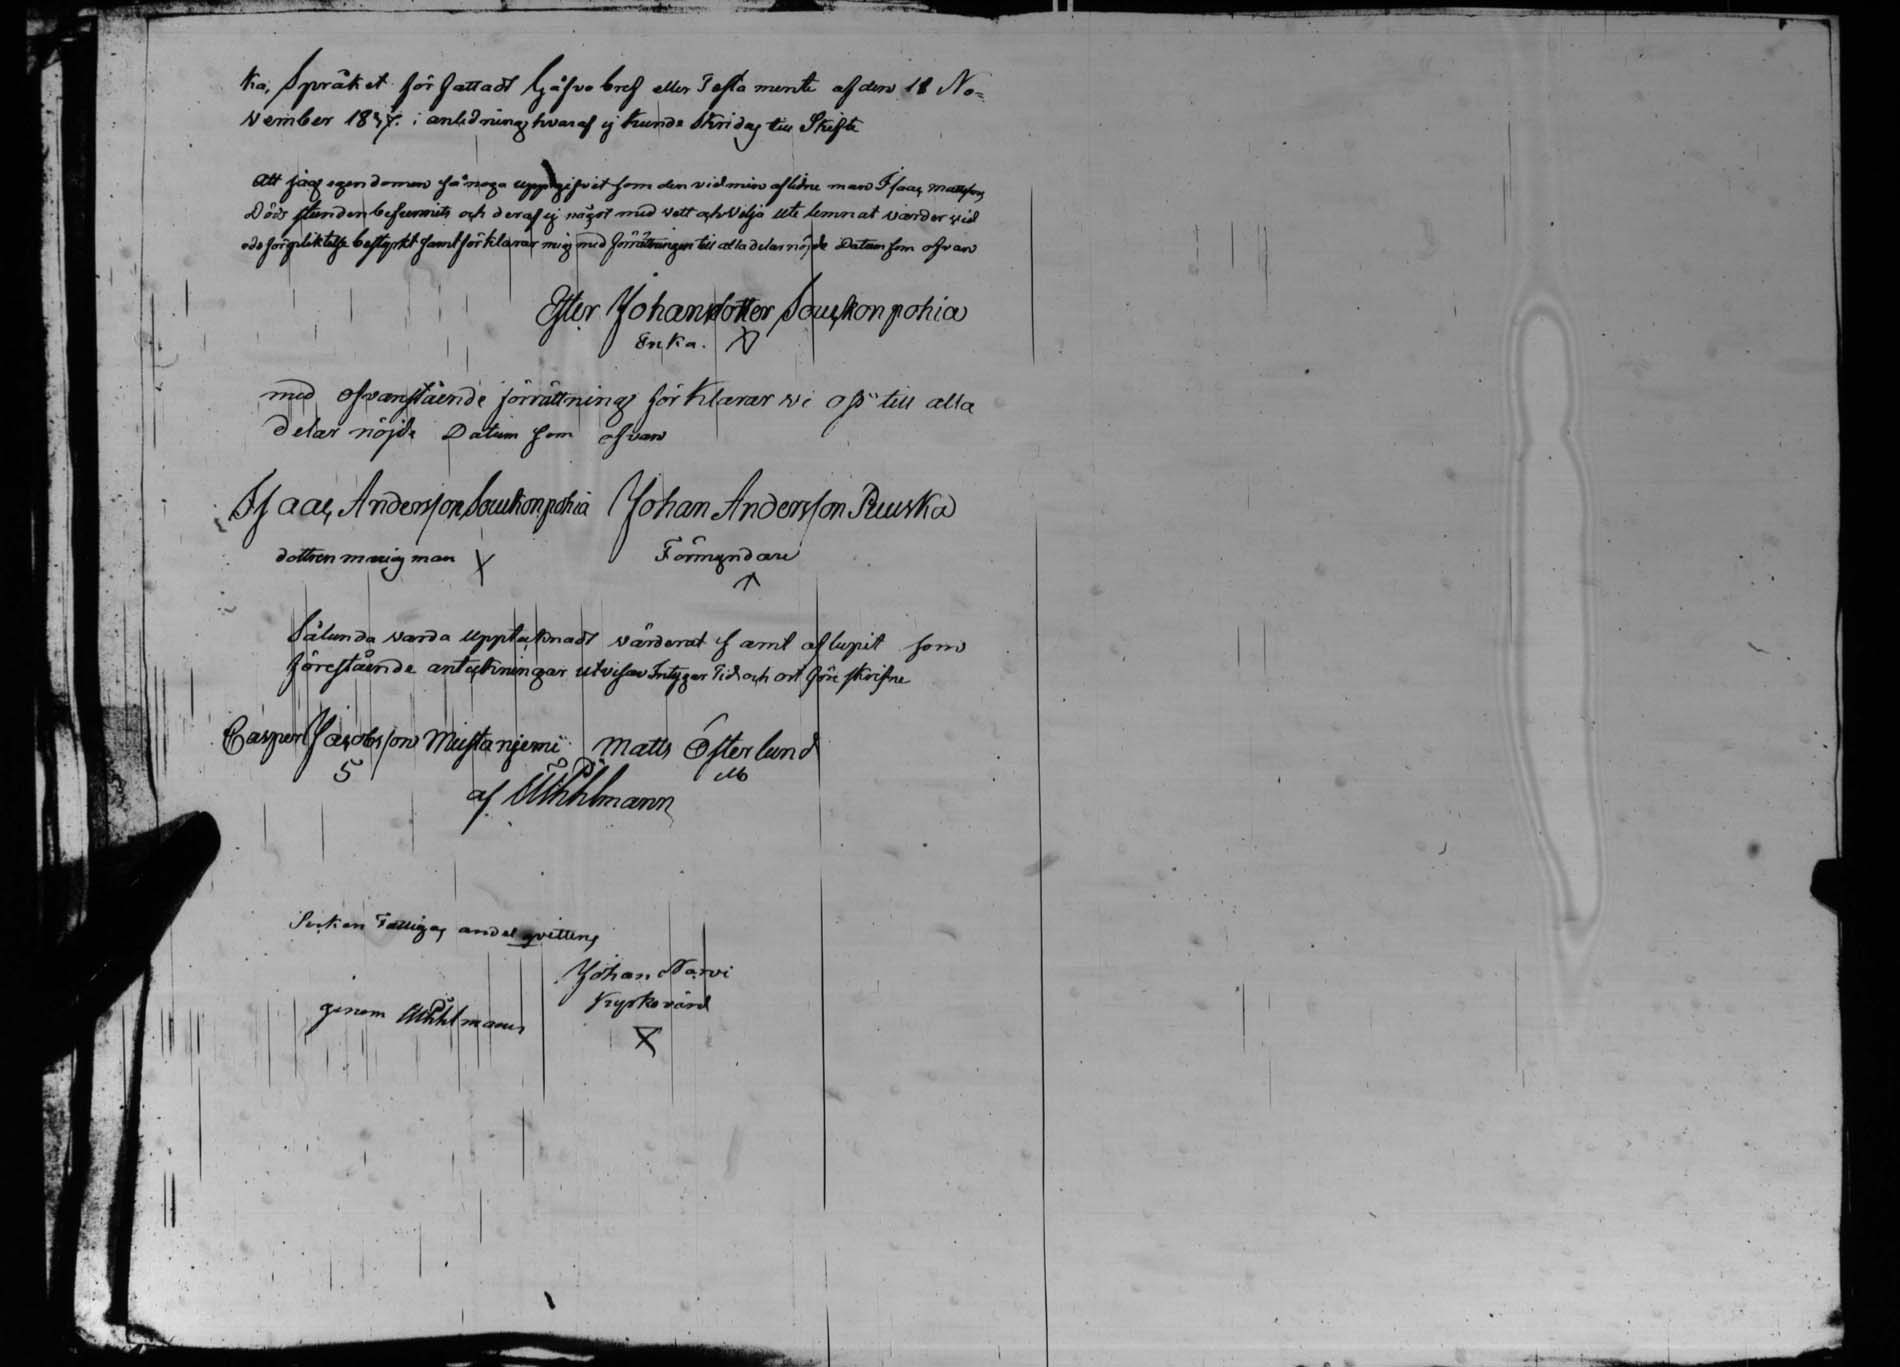 ka, Språket författadt Gåfvobref eller Testamente af den 18 No=
vember 1847. i anledning hvaraf ej kunde Skridas till Skifte
Att jag egendomen så noga uppgifvit som den vid min aflidne man Isaac Mattsson
Döds stunden befunnits och deraf ej något med vett och vilja utelemnat varder vid
eds förpliktelse bestyrkt samt förklarar mig med förrättningen till alla delar nöjde Datum som ofvan
Ester Johansdotter Souskonpohia
Enka. X
med ofvanstående förrättning förklarar vi oss till alla
delar nöjde Datum som ofvan
Isaac Andersson Soukonpohia Johan Andersson Ruuska
dottren man X Förmyndare
Sålunda varda upptecknadt värderat samt aflupit som
förestående anteckningar utvisar Intygar Tid och ort förr skrifne
Casper Jacobsson Mustaniemi Matts Österlund
af Mühlmann
Socken Fattigas andel qvitteras
Johan Narvi
Kyrkovärd
genom Mühlmann
X